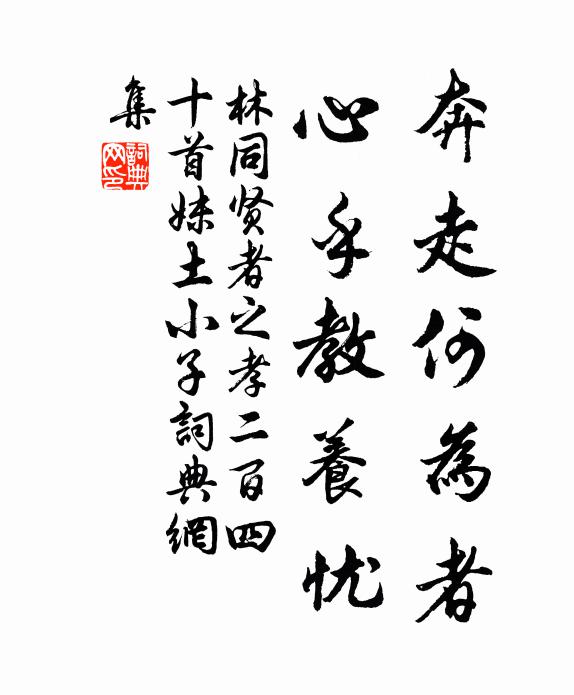 奔走何為者
心乎教養忧
林同贤者之孝二百四
十首妹土小子詞典網
集
詞典网印